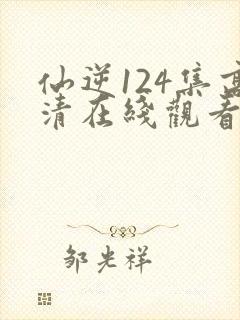 仙逆124集高
清在綫觀看
邹光祥